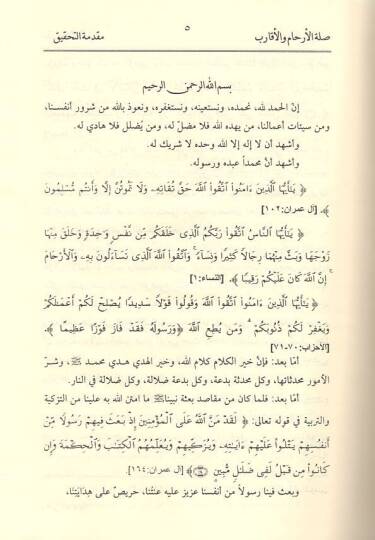 صلة الأرحام والأقارب ٥ مقدمة التحقيق
بسم الله الرحمن الرحيم
إنّ الحمد لله، نحمده، ونستعينه، ونستغفره، ونعوذ بالله من شرور أنفسنا،
ومن سيئات أعمالنا، من يهده الله فلا مضلّ له، ومن يُضلل فلا هادي له.
وأشهد أن لا إله إلا الله وحده لا شريك له.
وأشهد أنّ محمداً عبده ورسوله.
﴿ يَتَأَيُّهَا الَّذِينَ ءَامَنُوا اتَّقُوا اللَّهَ حَقَّ تُقَاتِهِ، وَلَا تَمُوتُنَّ إِلَّا وَأَنتُم مُّسْلِمُونَ
﴾. [آل عمران: ١٠٢]
﴿ يَتَأَيُّهَا النَّاسُ اتَّقُوا رَبَّكُمُ الَّذِى خَلَقَكُم مِّن نَّفْسٍ وَحِدَةٍ وَخَلَقَ مِنْهَا
زَوْجَهَا وَبَثَّ مِنْهُمَا رِجَالًا كَثِيرًا وَنِسَاءً ۚ وَاتَّقُوا اللَّهَ الَّذِى تَسَاءَلُونَ بِهِ، وَالْأَرْحَامَ
ۚ إِنَّ اللَّهَ كَانَ عَلَيْكُمْ رَقِيبًا ﴾. [النساء: ١]
﴿ يَتَأَيُّهَا الَّذِينَ ءَامَنُوا اتَّقُوا اللَّهَ وَقُولُوا قَوْلًا سَدِيدًا يُصْلِحْ لَكُمْ أَعْمَلَكُمْ
وَيَغْفِرْ لَكُمْ ذُنُوبَكُمْ ۗ وَمَن يُطِعِ اللَّهَ وَرَسُولَهُ فَقَدْ فَازَ فَوْزًا عَظِيمًا ﴾.
[الأحزاب: ٧٠-٧١]
أمّا بعد: فإنّ خير الكلام كلام الله، وخير الهدي هدي محمد ﷺ، وشرّ
الأمور محدثاتها، وكل محدثة بدعة، وكل بدعة ضلالة، وكل ضلالة في النار.
أمّا بعد: فلما كان من مقاصد بعثة نبينا ﷺ ما امتن الله به علينا من التزكية
والتربية في قوله تعالى: ﴿ لَقَدْ مَنَّ اللَّهُ عَلَى الْمُؤْمِنِينَ إِذْ بَعَثَ فِيهِمْ رَسُولًا مِّنْ
أَنفُسِهِمْ يَتْلُوا عَلَيْهِمْ ءَايَتِهِ، وَيُزَكِّيهِمْ وَيُعَلِّمُهُمُ الْكِتَبَ وَالْحِكْمَةَ وَإِن
كَانُوا مِن قَبْلُ لَفِى ضَلَلٍ مُّبِينٍ ﴾ [آل عمران: ١٦٤]
وبعث فينا رسولاً من أنفسنا عزيز عليه عنتُنا، حريصٌ على هِدَايَتِنَا،